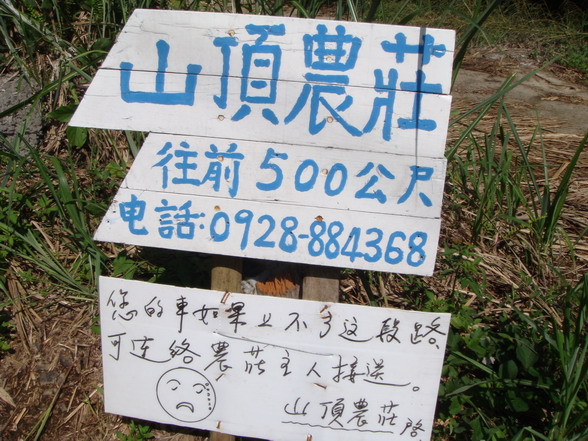 山頂農莊
往前500公尺
电話:0928-884368
您的車如果上不了这段路
可連絡農莊主人接送。
山頂農莊啓